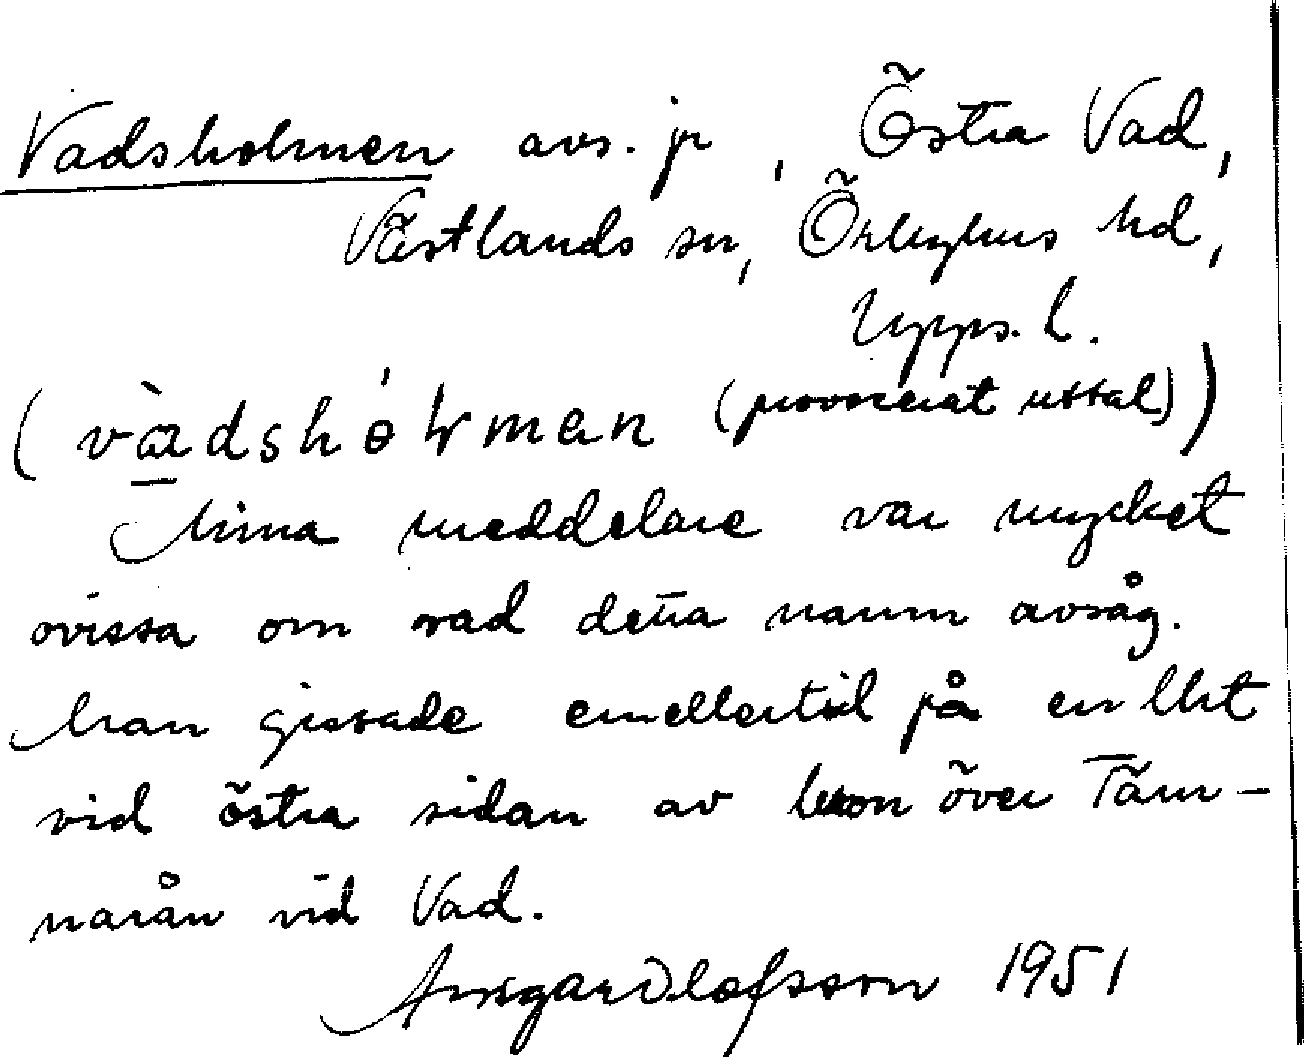 Vadsholmen avs. jr, Östra Vad,
Västlands sn, Örbyhus hd,
Upps. l.
(vàdshólmen (provocerat uttal))
Mina meddelare var mycket
ovissa om vad detta namn avsåg.
Man gissade emellertid på en lht
vid östra sidan av bron över Täm-
narån vid Vad.
Ansgar Olofsson 1951